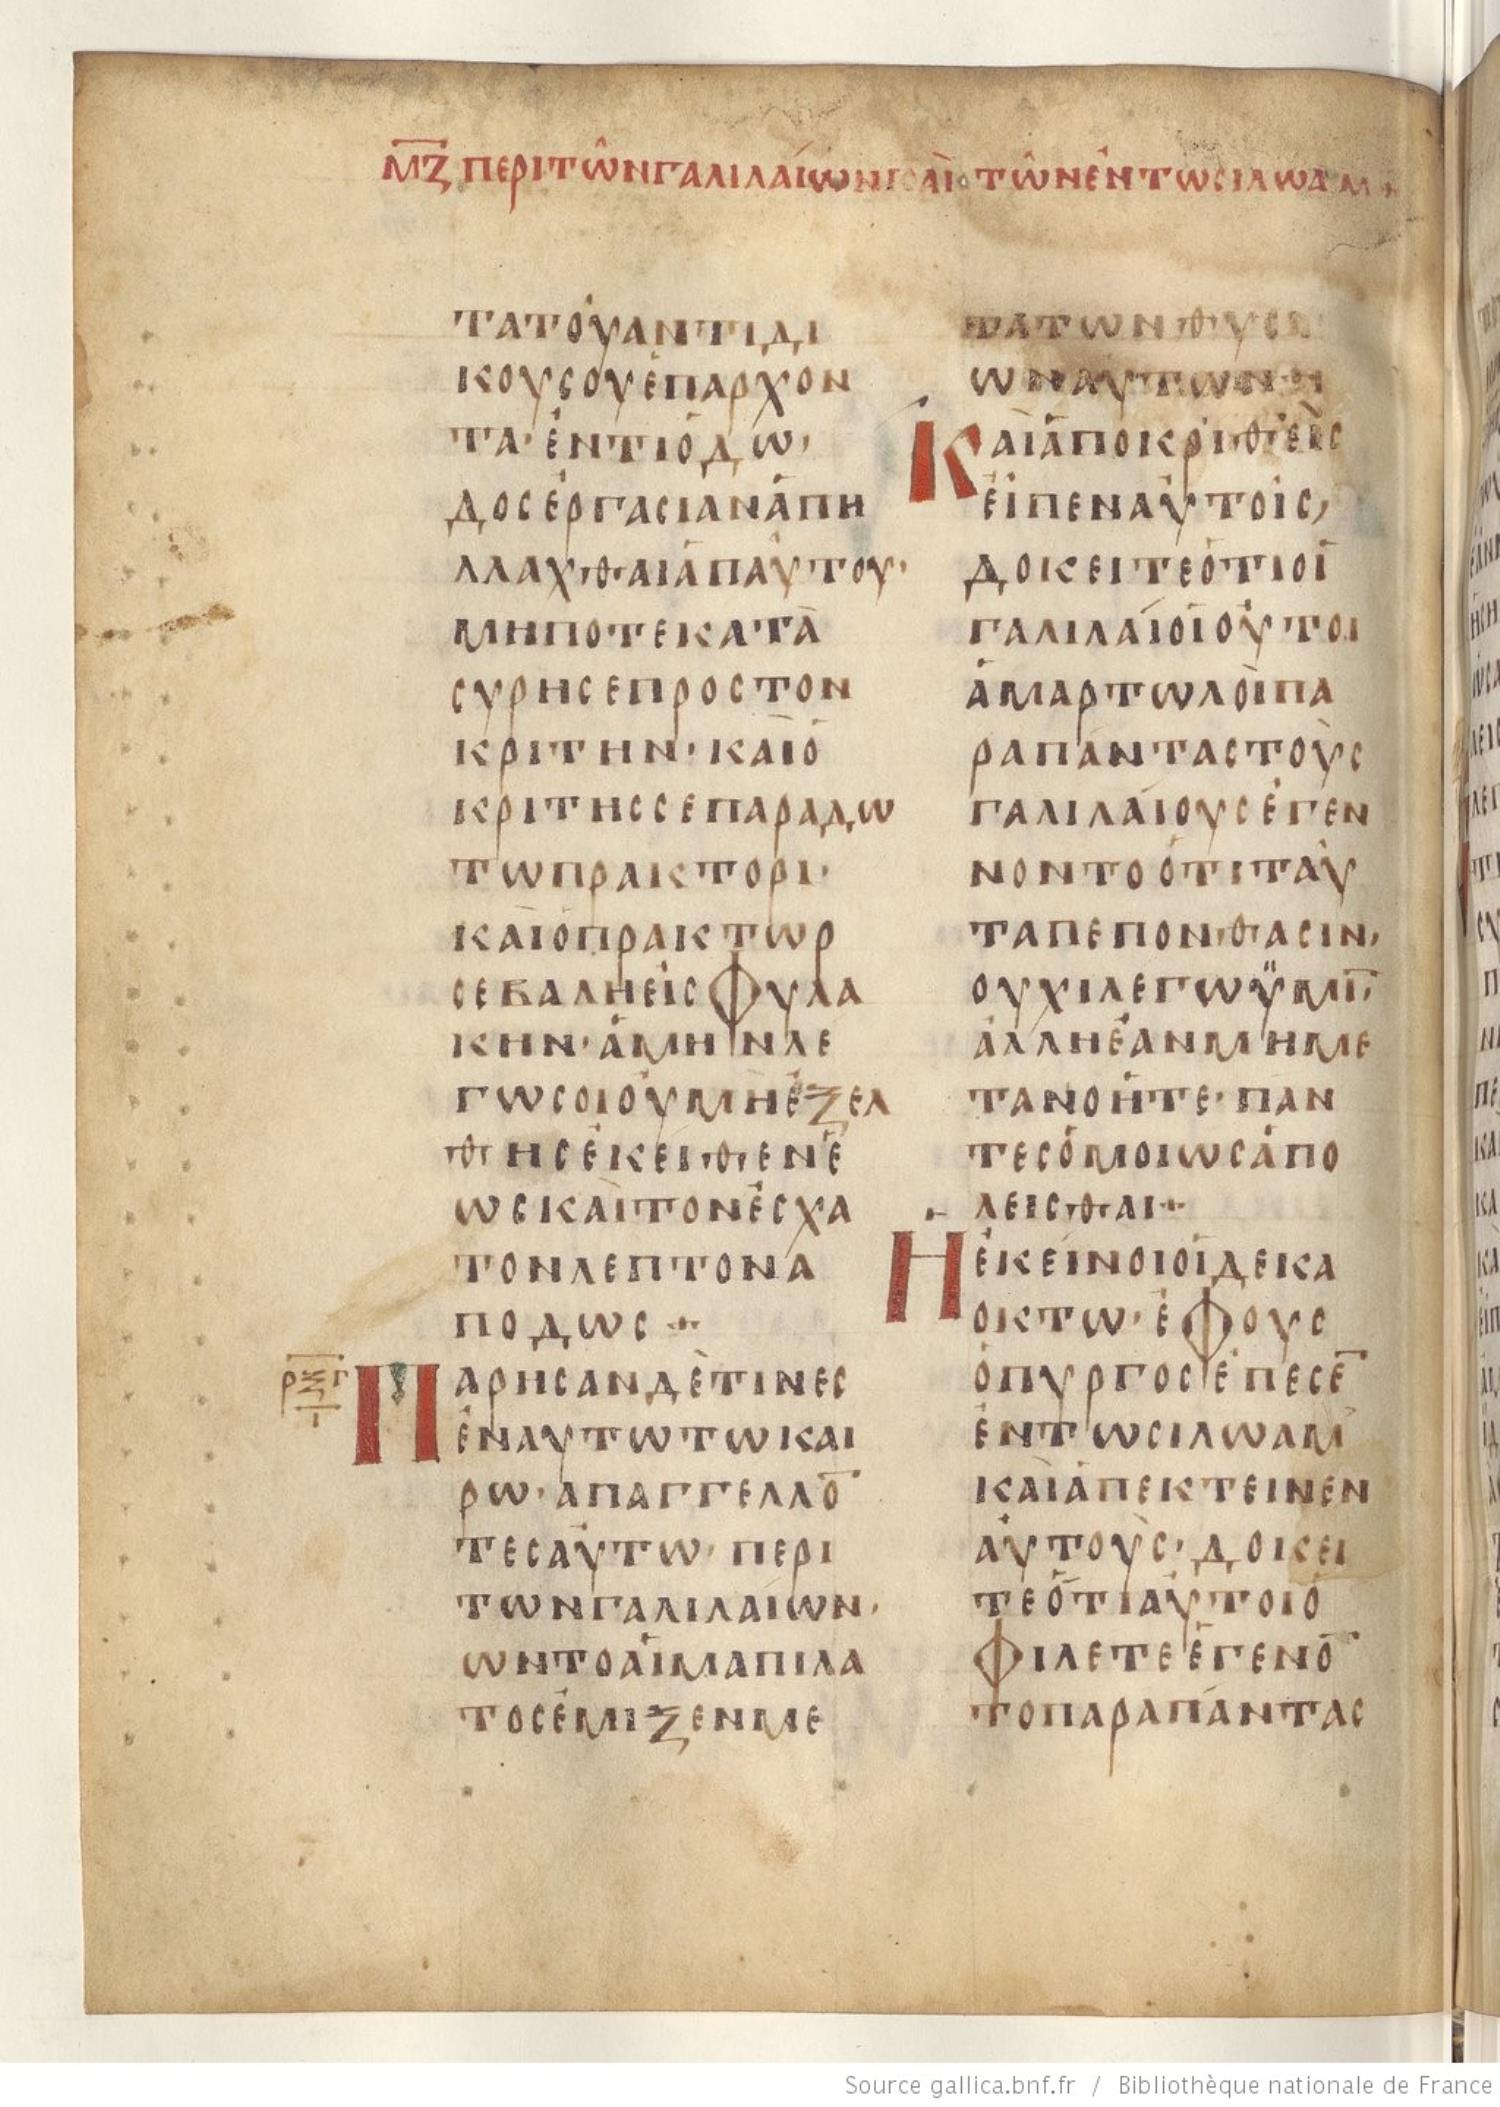 ΜΖ ΠΕΡΙ ΤῶΝ ΓΑΛΙΛΑίωΝ ΚΑὶ ΤῶΝ ἐΝ Τω ϹΙΛωΑΜ
ΤΑ ΤΟῦ ΑΝΤΙΔΙ
ΚΟΥ ϹΟΥ ἐΠΑΡΧΟΝ
ΤΑ· ἐΝ ΤΙ ὁΔω·
ΔΟϹ ἐΡΓΑϹΙΑΝ ἀΠΗ
ΛΛΑΧΘΑΙ ἀΠ ΑὐΤΟΥ·
ΜΗΠΟΤΕ ΚΑΤὰ
ϹΥΡΗ ϹΕ ΠΡΟϹ ΤΟΝ
ΚΡΙΤΗΝ· ΚΑὶ ὁ
ΚΡΙΤΗϹ ϹΕ ΠΑΡΑΔω
Τω ΠΡΑΚΤΟΡΙ·
ΚΑὶ ὁ ΠΡΑΚΤωΡ
ϹΕ ΒΑΛΗ ΕἰϹ ΦΥΛΑ
ΚΗΝ· ἀΜΗΝ ΛΕ
Γω ϹΟΙ ΟὐΜὴ ἐΞΕΛ
ΘΗϹ ἐΚΕῖΘΕΝ ἐ
ωϹ ΚΑὶ ΤΟΝ ἐϹΧΑ
ΤΟΝ ΛΕΠΤΟΝ Α
ΠΟΔωϹ +
ΡΜΓ
Ι
ΠΑΡΗϹΑΝ Δὲ ΤΙΝΕϹ
ἐΝ ΑΥΤω Τω ΚΑΙ
Ρω· ΑΠΑΓΓΕΛΛΟ̅
ΤΕϹ ΑὐΤω· ΠΕΡΙ
ΤωΝ ΓΑΛΙΛΑίωΝ·
ωΝ ΤΟ ΑἷΜΑ ΠΙΛΑ
ΤΟϹ ἐΜΙΞΕΝ ΜΕ
ΤΑ ΤωΝ ΘΥϹΙ
ωΝ ΑΥΤωΝ
ΚΑὶ ἀΠΟΚΡΙΘΕὶϹ
ΕἰΠΕΝ ΑὐΤΟῖϹ,
ΔΟΚΕΙΤΕ ὁΤΙ ΟΙ
ΓΑΛΙΛΑίΟΙ ΟὑΤΟΙ
ἁΜΑΡΤωΛΟὶ ΠΑ
ΡΑ ΠάΝΤΑϹ ΤΟὺϹ
ΓΑΛΙΛΑίΟΥϹ ἐΓΕΝ
ΝΟΝΤΟ ὁΤΙ ΤΑὐ
ΤΑ ΠΕΠΟΝΘΑϹΙΝ,
ΟΥΧΙ ΛΕΓω ΫΜΙ̅,
ἀΛΛΗ ἐΑΝ ΜΗ ΜΕ
ΤΑΝΟῆΤΕ· ΠΑΝ
ΤΕϹ ὁΜΟΙωϹ ἀΠΟ
ΛΕΙϹΘΑΙ +
Ἠ ἐΚΕίΝΟΙ ΟΙ ΔΕΚΑ
ΟΚΤω· ἐΦ ΟΥϹ
ὁ ΠΥΡΓΟϹ ἐΠΕϹΕ̅
ἐΝ Τω ϹΙΛωΑΜ
ΚΑὶ ἀΠΕΚΤΕΙΝΕΝ
ΑὐΤΟὺϹ· ΔΟΚΕΙ
ΤΕ ὁΤΙ ΑὐΤΟΙ Ὀ
ΦΙΛΕΤΕ ἐΓΕΝΟ̅
ΤΟ ΠΑΡΑ ΠάΝΤΑϹ
Source gallica.bnf.fr / Bibliothèque nationale de France